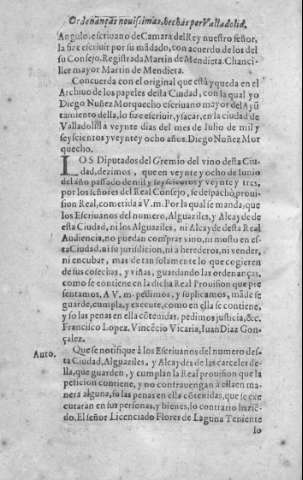 Ordenanças nouissimas, hechas per Valladolid,
Angulo, escriuano de Camara del Rey nuestro señor,
la fize escriuir por su mãdado, con acuerdo de los del
su Consejo. Registrada Martin de Mendieta. Chanci-
ller mayor Martin de Mendieta.
Concuerda con el original que està y queda en el
Archiuo de los papeles desta Ciudad, con la qual yo
Diego Nuñez Morquecho escriuano mayor del Ayũ
tamiento della, lo fize escriuir, y sacar, en la ciudad de
Valladolid a veynte dias del mes de Iulio de mil y
seyscientos y veynte y ocho años. Diego Nuñez Mor
quecho.
LOS Diputados del Gremio del vino desta Ciu-
dad, dezimos, que en veynte y ocho de Iunio
del año passado de mil y seyscientos y veynte y tres,
por los señores del Real Consejo, se despachò proui-
sion Real, cometida a V. m. Por la qual se manda, que
los Escriuanos del numero, Alguaziles, y Alcayde de
esta Ciudad, ni los Alguaziles, ni Alcayde desta Real
Audiencia, no puedan comprar vino, ni mosto en es-
ta Ciudad, ni su juridicion, ni a herederos, ni vender,
ni encubar, mas de tan solamente lo que cogieren
de sus cosechas, y viñas, guardando las ordenanças,
como se contiene en la dicha Real Prouision que pre
sentamos, A V. m. pedimos, y suplicamos, mãde se
guarde, cumpla, y execute, como en ella se contiene,
y so las penas en ella cõtenidas, pedimos justicia, &c.
Francisco Lopez. Vincẽcio Vicaria, Iuan Diaz Gon-
çalez.
Auto. Que se notifique à los Escriuanos del numero des-
ta Ciudad, Alguaziles, y Alcaydes de las carceles de-
lla, que guarden, y cumplan la Real prouision que la
peticion contiene, y no contrauengan à ella en mane
ra alguna, so las penas en ella cõtenidas, que se exe
cutaran en sus personas, y bienes, lo contrario hazié-
do. El señor Licenciado Flores de Laguna Teniente
lo